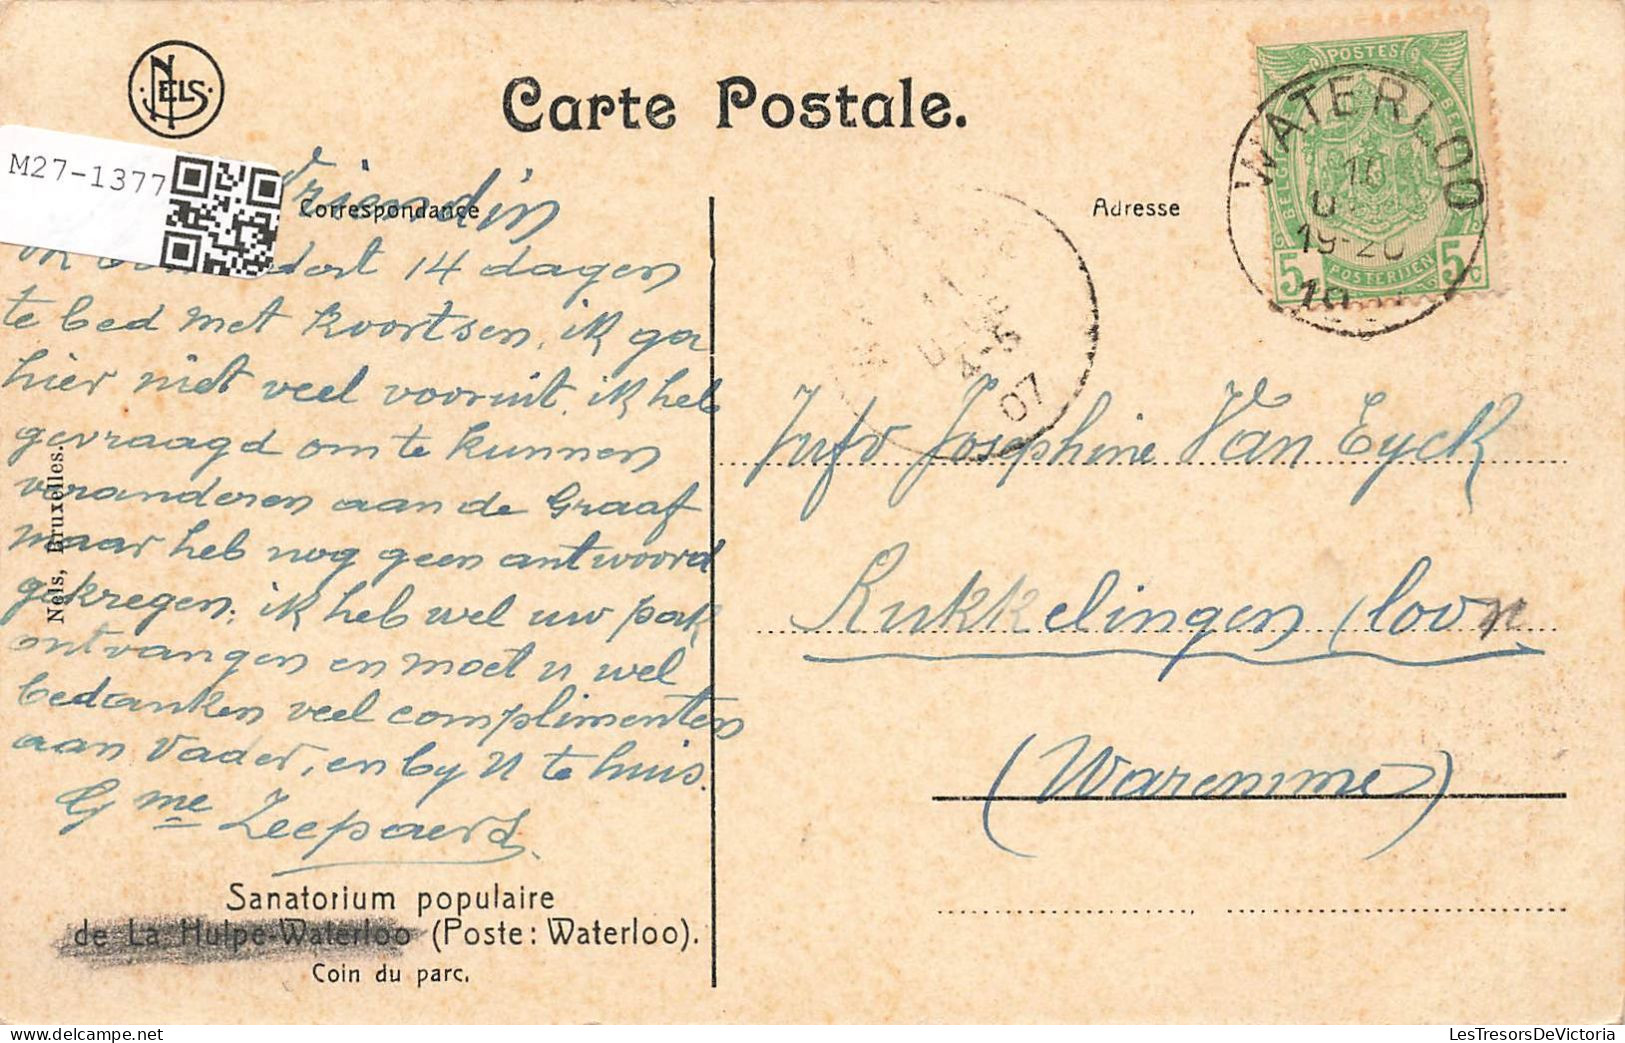 NELS
Carte Postale.
M27-1377
Vriendin
Correspondance
Adresse
14 dagen
te bed met koortsen, ik ga
hier niet veel vooruit, ik heb
gevraagd om te kunnen
veranderen aan de Graaf
maar heb nog geen antwoord
gekregen; ik heb wel uw pak
ontvangen en moet u wel
bedanken veel complimenten
aan Vader, en by U te huis.
Gme Zeepaers
Nels, Bruxelles.
Sanatorium populaire
de La Hulpe-Waterloo (Poste: Waterloo).
Coin du parc.
POSTES
BELGIQUE
BELGIË
5 POSTERIJEN 5c
WATERLOO
19-20
11
4-5
07
Jufv Josephine Van Eyck
Rukkelingen (loon
(Waremme)
LesTresorsDeVictoria